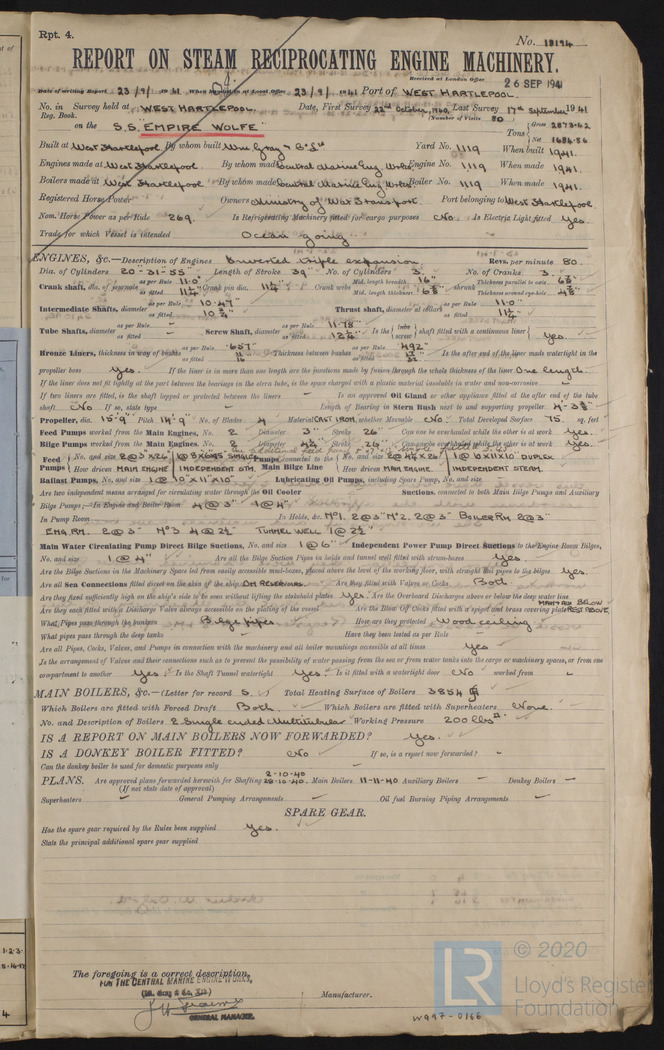 Rpt. 4.
No. 19194
REPORT ON STEAM RECIPROCATING ENGINE MACHINERY.
Received at London Office 26 SEP 1941
Date of writing Report 23/9/1941 When handed in at Local Office 23/9/1941 Port of WEST HARTLEPOOL.
No. in Survey held at WEST HARTLEPOOL. Date, First Survey 22nd October, 1940 Last Survey 17th September 1941
Reg. Book. (Number of Visits 80)
on the S.S. "EMPIRE WOLFE" Tons { Gross 2873.42
Net 1684.56
Built at West Hartlepool By whom built Wm Gray & Co Ltd Yard No. 1119 When built 1941.
Engines made at West Hartlepool. By whom made Central Marine Eng Works Engine No. 1119 When made 1941.
Boilers made at West Hartlepool By whom made Central Marine Eng Works Boiler No. 1119 When made 1941.
Registered Horse Power Owners Ministry of War Transport Port belonging to West Hartlepool.
Nom. Horse Power as per Rule 269. Is Refrigerating Machinery fitted for cargo purposes No Is Electric Light fitted Yes.
Trade for which Vessel is intended Ocean going
ENGINES, &c.—Description of Engines Inverted triple expansion Revs. per minute 80.
Dia. of Cylinders 20-31-55" Length of Stroke 39" No. of Cylinders 3. No. of Cranks 3.
Crank shaft, dia. of journals as per Rule 11.0" as fitted 11¼" Crank pin dia. 11¼" Crank webs Mid. length breadth 16" Mid. length thickness shrunk Thickness parallel to axis Thickness around eye-hole
Intermediate Shafts, diameter as per Rule 10.47" as fitted 10¾" Thrust shaft, diameter at collars as per Rule 11.0" as fitted 11¼"
Tube Shafts, diameter as per Rule — as fitted — Screw Shaft, diameter as per Rule 11.78" as fitted 12¼" Is the { tube screw } shaft fitted with a continuous liner { Yes.
Bronze Liners, thickness in way of bushes as per Rule .657" as fitted Thickness between bushes as per Rule .492" as fitted Is the after end of the liner made watertight in the
propeller boss Yes. If the liner is in more than one length are the junctions made by fusion through the whole thickness of the liner One length.
If the liner does not fit tightly at the part between the bearings in the stern tube, is the space charged with a plastic material insoluble in water and non-corrosive —
If two liners are fitted, is the shaft lapped or protected between the liners — Is an approved Oil Gland or other appliance fitted at the after end of the tube
shaft No If so, state type — Length of Bearing in Stern Bush next to and supporting propeller
Propeller, dia. 15'-9" Pitch 14'-9" No. of Blades 4 Material CAST IRON. whether Moveable No Total Developed Surface 75 sq. feet
Feed Pumps worked from the Main Engines, No. 2 Diameter 3" Stroke 26" Can one be overhauled while the other is at work Yes.
Bilge Pumps worked from the Main Engines, No. 2 Diameter Stroke 26" Can one be overhauled while the other is at work Yes.
Feed Pumps { No. and size 2@3"x26" How driven MAIN ENGINE INDEPENDENT STM. Pumps connected to the Main Bilge Line { No. and size 1@10x11x10" DUPLEX How driven MAIN ENGINE INDEPENDENT STEAM.
Ballast Pumps, No. and size 1@10"x11"x10" Lubricating Oil Pumps, including Spare Pump, No. and size —
Are two independent means arranged for circulating water through the Oil Cooler — Suctions, connected to both Main Bilge Pumps and Auxiliary
Bilge Pumps;—In Engine and Boiler Room 4@3" 1@4"
In Pump Room In Holds, &c. No1. 2@3" No2. 2@3" BOILER RM. 2@3"
ENG. RM. 2@3" No3 4@2½" TUNNEL WELL 1@2½"
Main Water Circulating Pump Direct Bilge Suctions, No. and size 1@6" Independent Power Pump Direct Suctions to the Engine Room Bilges,
No. and size 1@4" Are all the Bilge Suction Pipes in holds and tunnel well fitted with strum-boxes Yes.
Are the Bilge Suctions in the Machinery Space led from easily accessible mud-boxes, placed above the level of the working floor, with straight tail pipes to the bilges Yes.
Are all Sea Connections fitted direct on the skin of the ship Are they fitted with Valves or Cocks Both
Are they fixed sufficiently high on the ship's side to be seen without lifting the stokehold plates Yes. Are the Overboard Discharges above or below the deep water line MAIN + AUX BELOW REST ABOVE.
Are they each fitted with a Discharge Valve always accessible on the plating of the vessel Are the Blow Off Cocks fitted with a spigot and brass covering plate Yes
What Pipes pass through the bunkers Bilge pipes. How are they protected Wood ceiling
What pipes pass through the deep tanks — Have they been tested as per Rule —
Are all Pipes, Cocks, Valves, and Pumps in connection with the machinery and all boiler mountings accessible at all times Yes
Is the arrangement of Valves and their connections such as to prevent the possibility of water passing from the sea or from water tanks into the cargo or machinery spaces, or from one
compartment to another Yes. Is the Shaft Tunnel watertight Yes. Is it fitted with a watertight door No worked from —
MAIN BOILERS, &c.—(Letter for record S. ) Total Heating Surface of Boilers 3854
Which Boilers are fitted with Forced Draft Both. Which Boilers are fitted with Superheaters None.
No. and Description of Boilers 2 Single ended Multitubular Working Pressure 200 lbs
IS A REPORT ON MAIN BOILERS NOW FORWARDED? Yes.
IS A DONKEY BOILER FITTED? No If so, is a report now forwarded? -
Can the donkey boiler be used for domestic purposes only —
PLANS. Are approved plans forwarded herewith for Shafting 2-10-40 28-10-40. Main Boilers 11-11-40 Auxiliary Boilers — Donkey Boilers —
(If not state date of approval)
Superheaters — General Pumping Arrangements — Oil fuel Burning Piping Arrangements —
SPARE GEAR.
Has the spare gear required by the Rules been supplied Yes.
State the principal additional spare gear supplied
The foregoing is a correct description,
FOR THE CENTRAL MARINE ENGINE WORKS,
Manufacturer.
GENERAL MANAGER.
W997-0166
LR © 2020
Lloyd's Register
Foundation